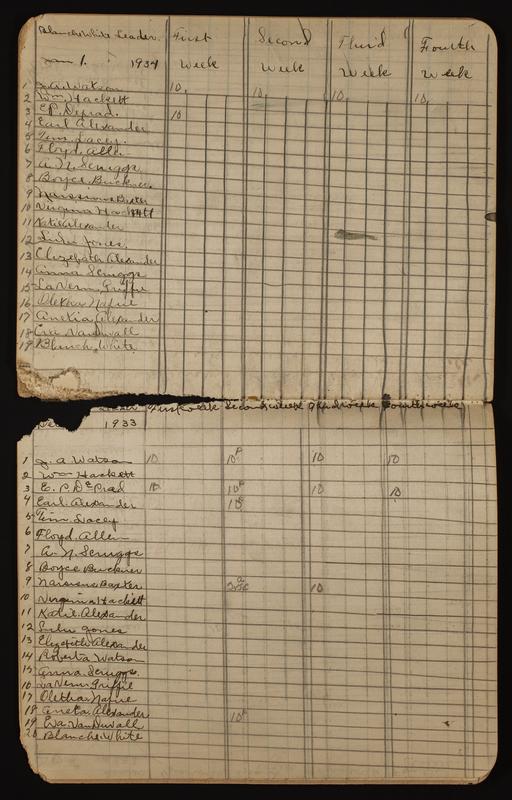 Blanch White Leader. First Second Third Fourth
Jan 1. 1934 Week Week Week Week
1 J. A. Watson 10. 10. 10. 10.
2 Wm Hackett
3 E. P. Deprad. 10
4 Earl Alexander
5 Tim Lacey.
6 Floyd Allen.
7 A. N. Scruggs
8 Boyce Buckner.
9 Narsissus Baxter
10 Virginia Hackett
11 Katie Alexander
12 Lulu Jones.
13 Elizebath Alexander
14 Anna Scruggs
15 LaVern Griffie
16 Oletha Nafue
17 Aneita Alexander
18 Eva VanDuvall
19 Blanch White
Leader First week Second week Third week Fourth week
Dec 1933
1 J. A Watson 10 10 10 10
2 Wm Hackett
3 E. P. De Prad 10 10 10 10
4 Earl Alexander 10
5 Tim Lacey
6 Floyd Allen
7 A. N. Scruggs
8 Boyce Buckner
9 Narsissus Baxter 10
10 Virginia Hackett
11 Katie Alexander
12 Lulu Jones
13 Elizebath Alexander
14 Roberta Watson
15 Anna Scruggs.
16 LaVern Griffie
17 Oletha Nafue
18 Aneta Alexander 10
19 Eva VanDuvall
20 Blanche White